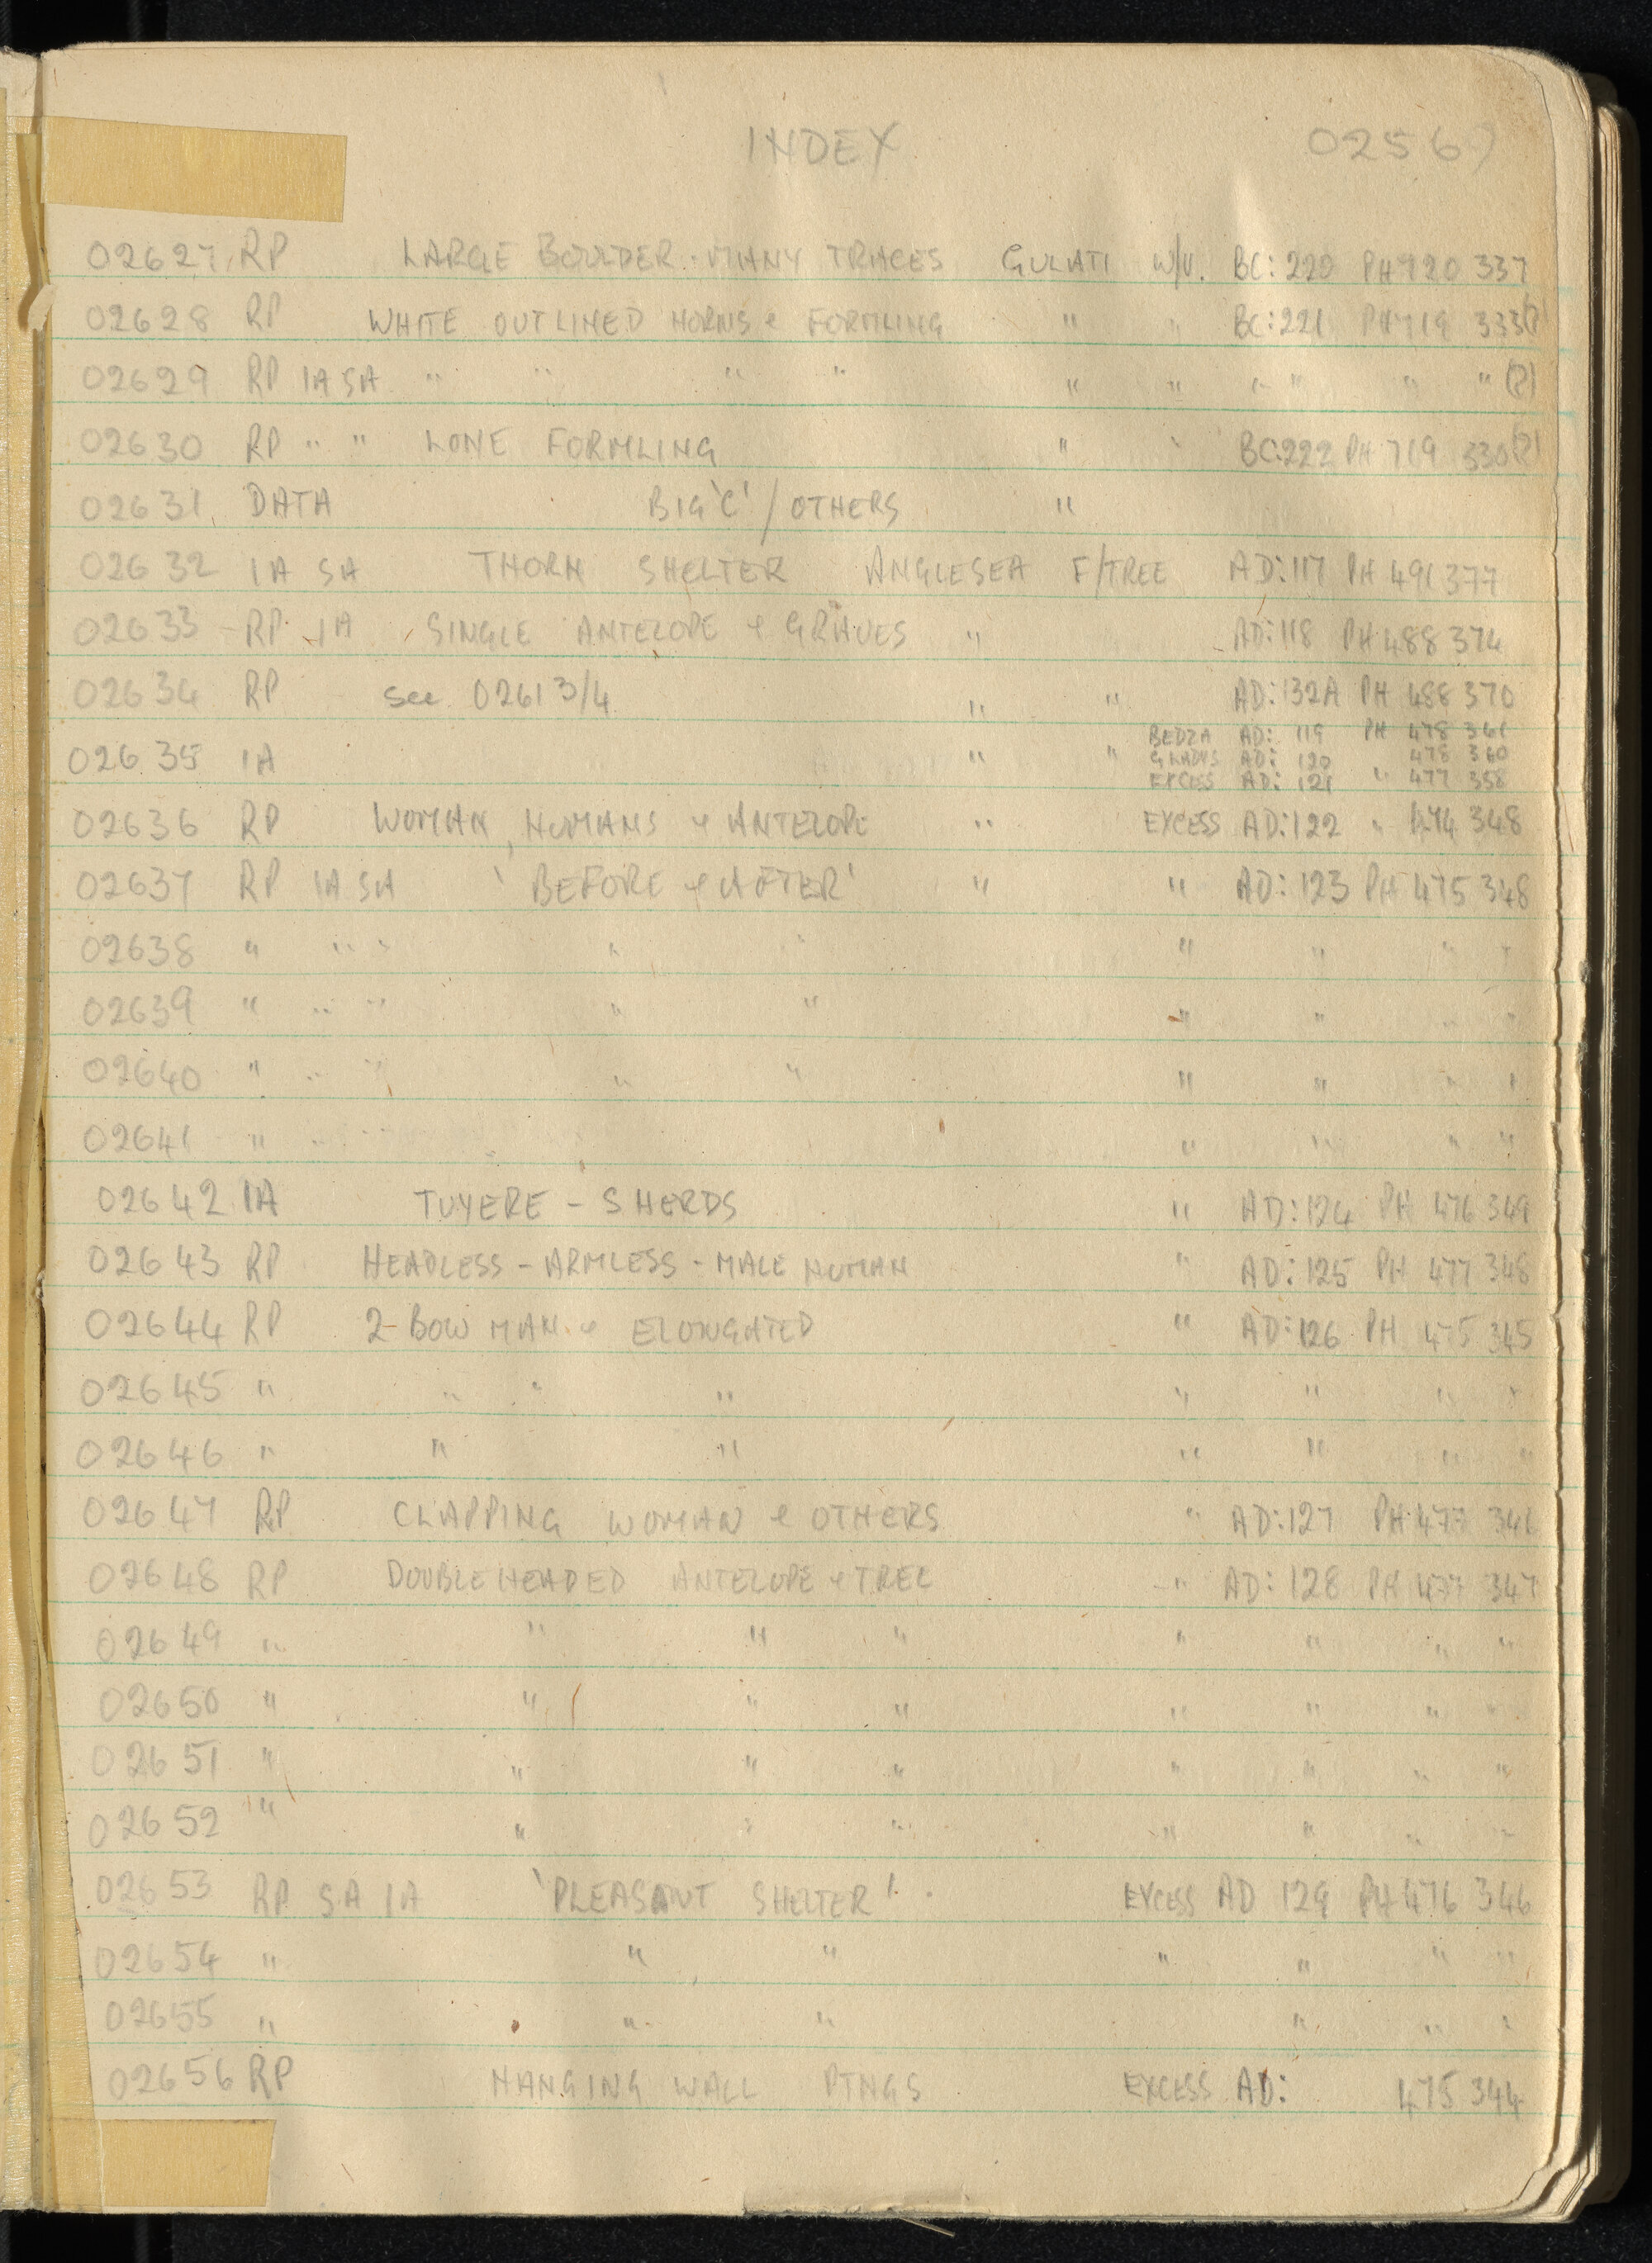 INDEX 02569
02627 RP LARGE BOULDER - MANY TRACES GULATI W/V. BC:220 PH 720 337
02628 RP WHITE OUTLINED HORNS & FORMLING " " BC:221 PH 719 333(?)
02629 RP IA SA " " " " " " " " " " (?)
02630 RP " " LONE FORMLING " " BC:222 PH 719 330(?)
02631 DATA BIG 'C' / OTHERS "
02632 IA SA THORN SHELTER ANGLESEA F/TREE AD:117 PH 491 377
02633 RP IA SINGLE ANTELOPE & GRAVES " AD:118 PH 488 374
02634 RP See 02613/4 " " AD:132A PH 488 370
BEDZA AD: 119 PH 478 361
02635 IA " " GLADYS AD: 120 478 360
EXCESS AD: 121 " 477 358
02636 RP WOMAN, HUMANS & ANTELOPE " EXCESS AD:122 " 474 348
02637 RP IA SA 'BEFORE & AFTER' " " AD:123 PH 475 348
02638 " " " " " " " " "
02639 " " " " " " " " "
02640 " " " " " " " " "
02641 " " " " " " "
02642 IA TUYERE - SHERDS " AD:124 PH 476 349
02643 RP HEADLESS - ARMLESS - MALE HUMAN " AD:125 PH 477 348
02644 RP 2-BOW MAN & ELONGATED " AD:126 PH 475 345
02645 " " " " " " " "
02646 " " " " " " "
02647 RP CLAPPING WOMAN & OTHERS " AD:127 PH 477 346
02648 RP DOUBLE HEADED ANTELOPE & TREE " AD:128 PH 477 347
02649 " " " " " " " "
02650 " " " " " " " "
02651 " " " " " " " "
02652 " " " " " " " "
02653 RP SA IA 'PLEASANT SHELTER' EXCESS AD 129 PH 476 346
02654 " " " " " " "
02655 " " " " " "
02656 RP HANGING WALL PTNGS EXCESS AD: 475 344